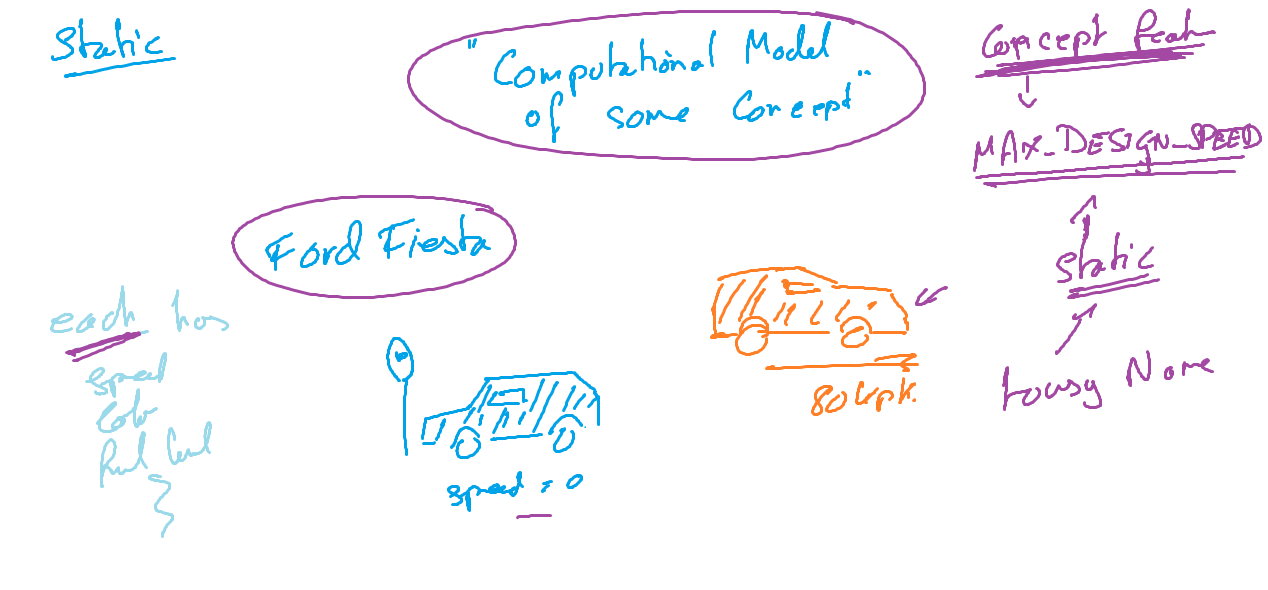 Static
"Computational Model
of some Concept"
Concept feat
MAX_DESIGN_SPEED
Static
Lousy Name
Ford Fiesta
each has
speed
Color
speed = 0
80 kph.